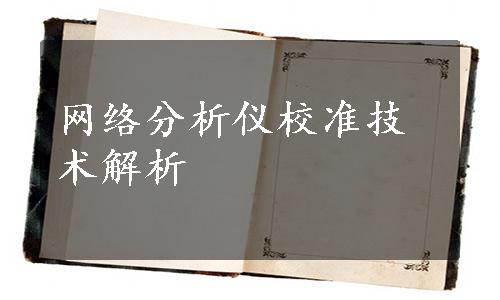 网络分析仪校准技
术解析